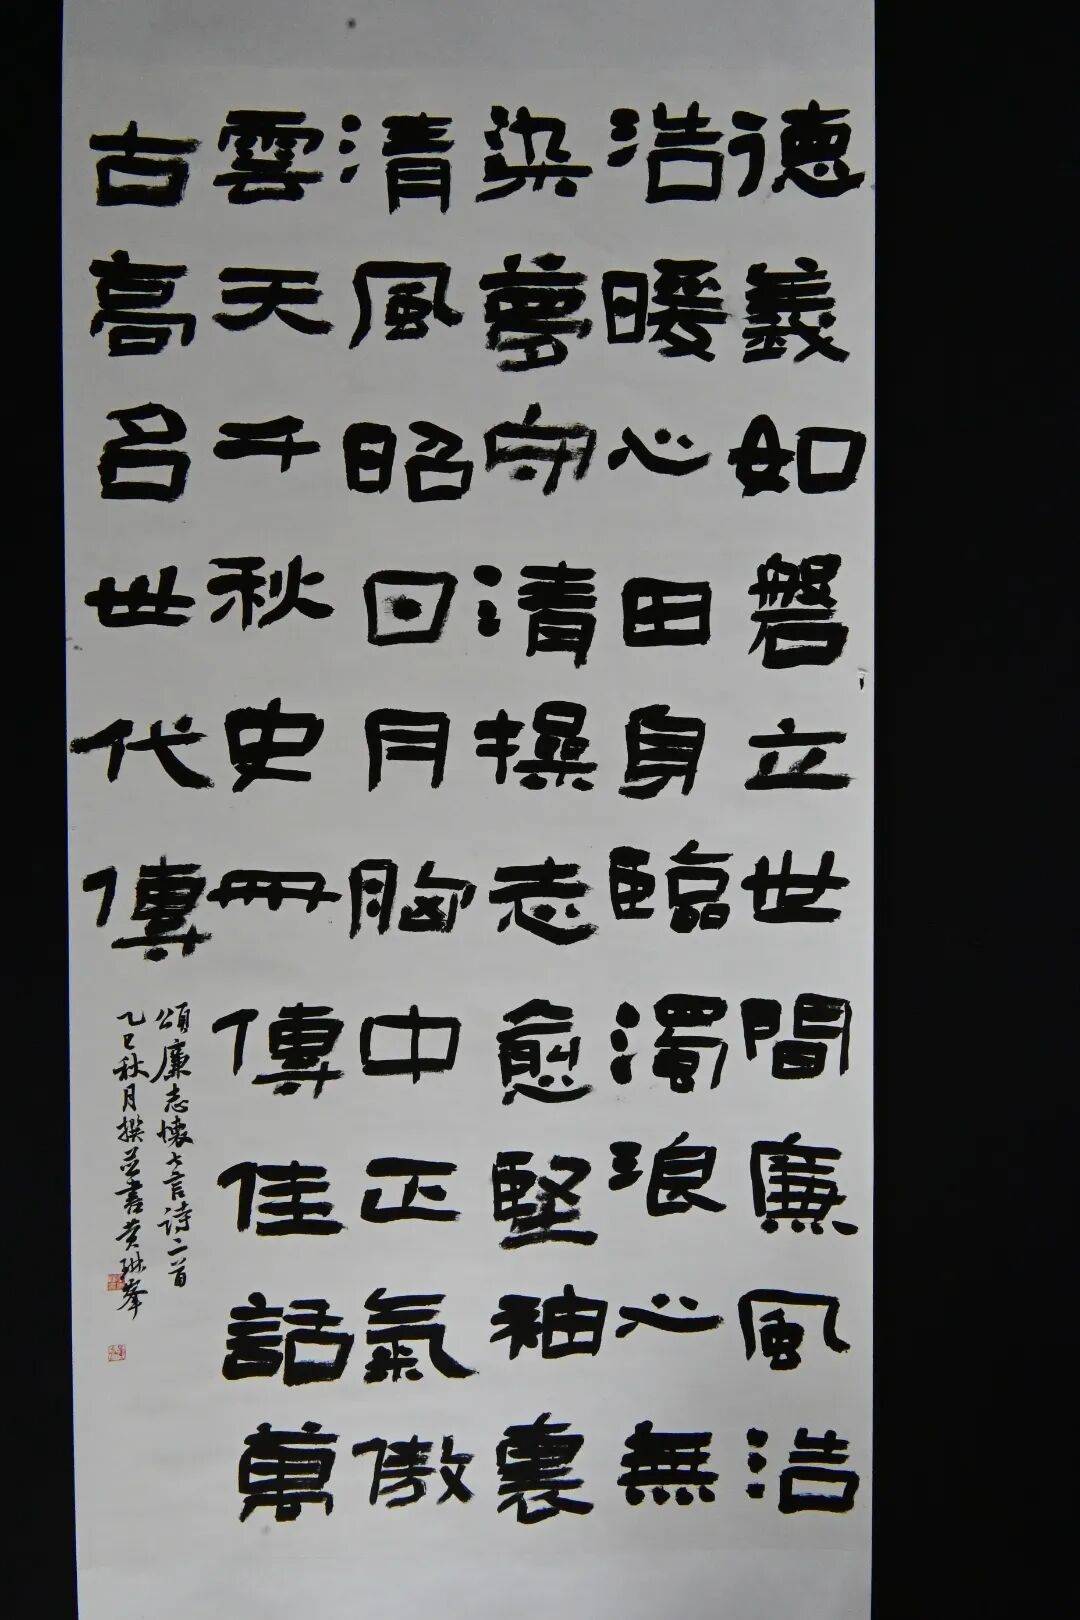 德義如磐立世間廉風浩
浩暖心田身臨濁浪心無
染夢守清操志愈堅袖裏
清風昭日月胸中正氣傲
雲天千秋史冊傳佳話萬
古高名世代傳
頌廉志懷七言詩二首
乙巳秋月撰並書黄琳峯